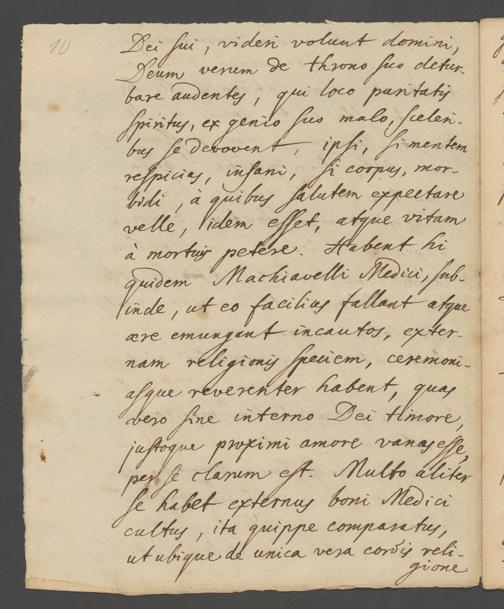 10
Dei sui, videri volunt domini,
Deum verum de throno suo detur-
bare audentes, qui loco puritatis
spiritus, ex genio suo malo, sceleri-
bus se devovent, ipsi, si mentem
respicias, insani, si corpus, mor-
bidi, à quibus salutem expectare
velle, idem esset, atque vitam
à mortuis petere. Habent hi
quidem Machiavelli Medici, sub-
inde, ut eo facilius fallant atque
ære emungant incautos, exter-
nam religionis speciem, ceremoni-
asque reverenter habent, quas
vero sine interno Dei timore,
justoque proximi amore vanas esse,
per se clarum est. Multo aliter
se habet externus boni Medici
cultus, ita quippe comparatus,
ut ubique de unica vera cordis reli-
gione